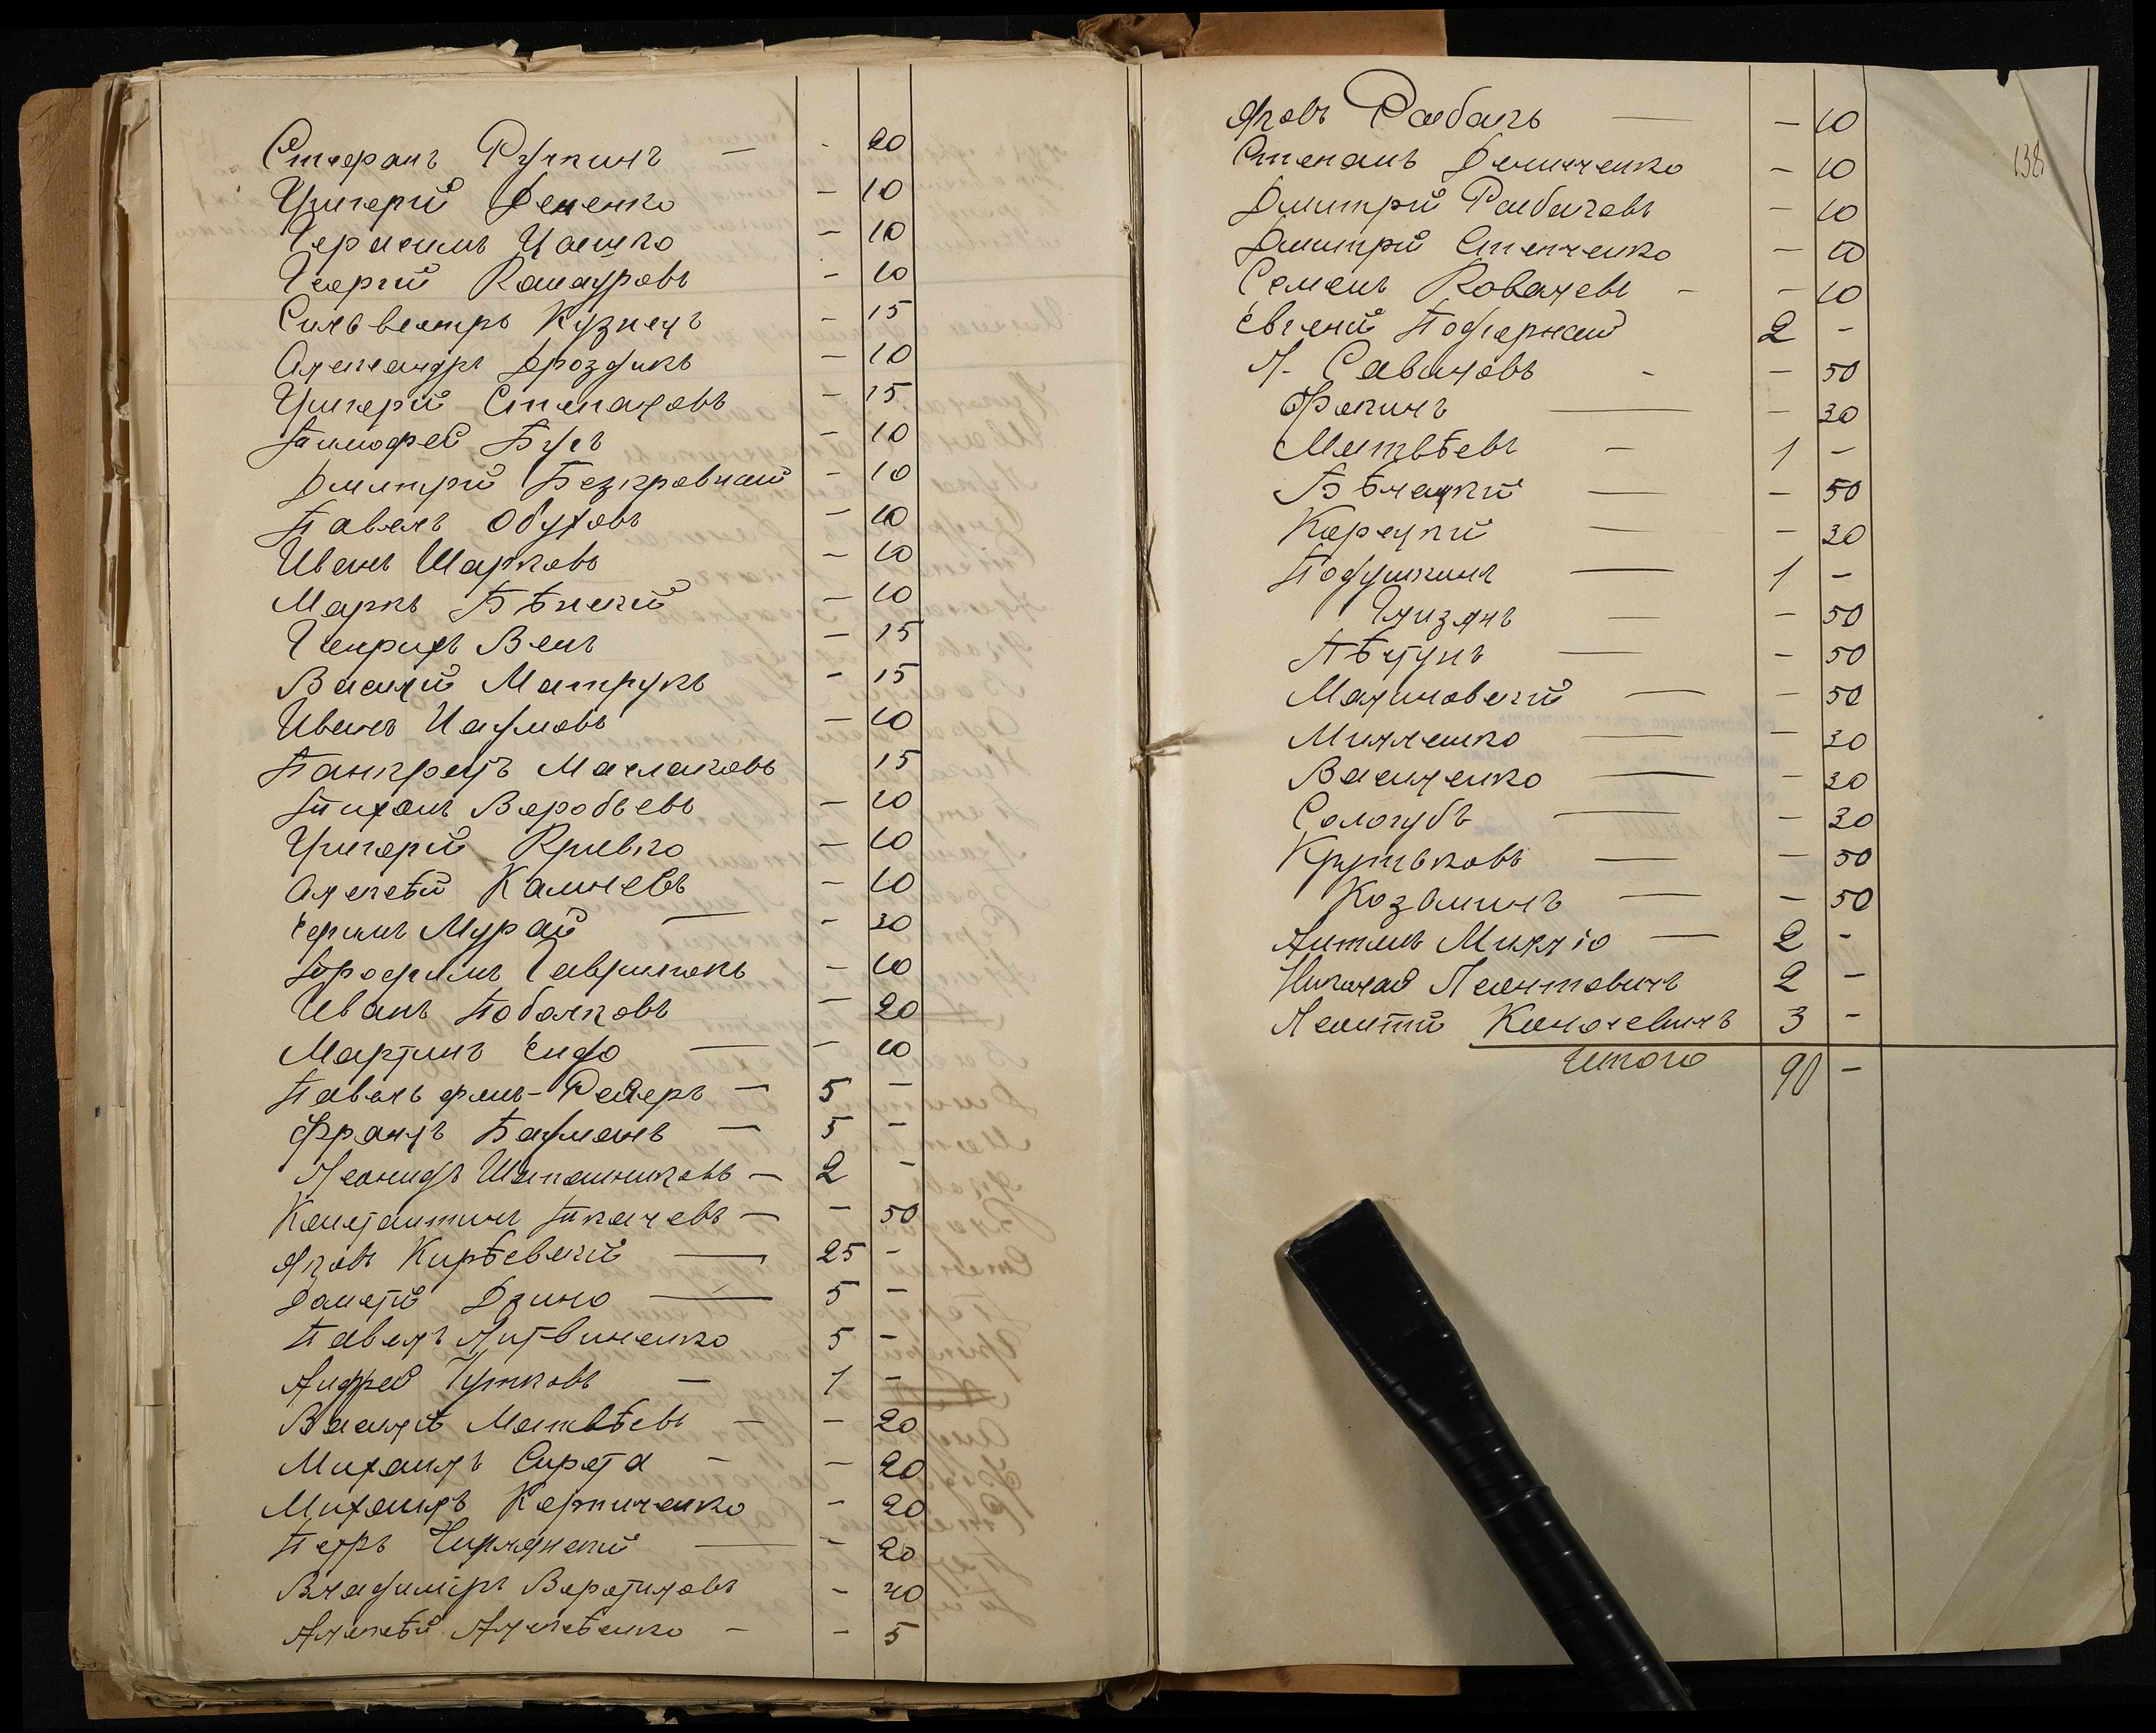 Стефанъ Рупкинъ — - 20
Григорій Деменко — 10
Герасимъ Цашко — 10
Георгій Комауровъ — 10
Сильвестръ Кузнецъ — 15
Александръ Дроздикъ — 10
Григорій Степановъ — 15
Тимофей Бусъ — 10
Дмитрій Безкровный — 10
Павелъ Обуховъ — 10
Иванъ Шарковъ — 10
Маркъ Бѣлскій — 10
Генрихъ Венъ — 15
Василій Матрукъ — 15
Иванъ Наумовъ — 10
Панкрацъ Маслаковъ 15
Тихонъ Воробьевъ — 20
Григорій Кривко — 10
Алексѣй Калачевъ — 10
Ефимъ Мурай — — 30
Трофимъ Гавриликъ — 10
Иванъ Поболковъ — 20
Мартинъ Ендо — — 10
Павелъ фонъ-Рейеръ — 5 —
Францъ Бауманъ — 5 —
Леонидъ Шапошниковъ — 2 —
Константинъ Ткачевъ — — 50
Яковъ Кирѣевскій — 25 —
Дометій Дзино — 5 —
Павелъ Литвиненко 5 —
Андрей Гутковъ — 1 —
Василій Матвѣевъ — — 20
Михаилъ Сирота — — 20
Михаилъ Карпиченко — 20
Петръ — — 20
Владиміръ Воротиловъ — 40
Алексѣй Алексѣенко — — 5
138
Яковъ Рыбалъ — — 10
Степанъ Демиченко — 10
Дмитрій Рыбачевъ — 10
Дмитрій Степченко — 10
Семенъ Ковалевъ — — 10
Евгеній Подгорный 2 —
Л. Савиловъ - — 50
Фокинъ — — 30
Матвѣевъ — 1 —
Бѣлацкій — — 50
Корецкій — — 30
Подушкинъ — 1 —
Глизянъ — — 50
Пѣтунъ — — 50
Малиновскій — — 50
Миллешко — — 30
Василенко — — 30
Сологубъ — — 30
Крутьковъ — — 50
Козьминъ — — 50
Антонъ Милліо — 2 —
Николай Леонтовичъ 2 —
Леонтій Канаевичъ 3 —
Итого 90 —